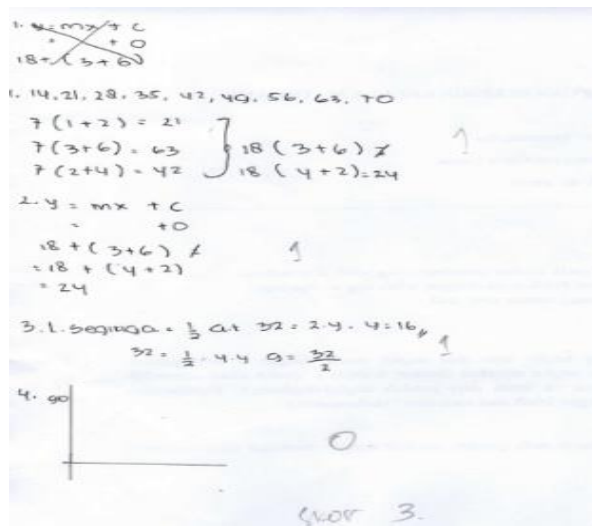 1. y = mx + c
= + 0
18 + (3+6)
1. 14, 21, 28, 35, 42, 49, 56, 63, 70
7 (1+2) = 21
7 (3+6) = 63
7 (2+4) = 42
18 (3+6) ≠
18 (4+2) = 24
1
2. y = mx + c
= +0
18 + (3+6) ≠
= 18 + (4+2)
= 24
1
3. L. segitiga = 1/2 a.t 32 = 2.y. y = 16
32 = 1/2 . 4.y a = 32/2
1
4. 90
0
Skor 3.